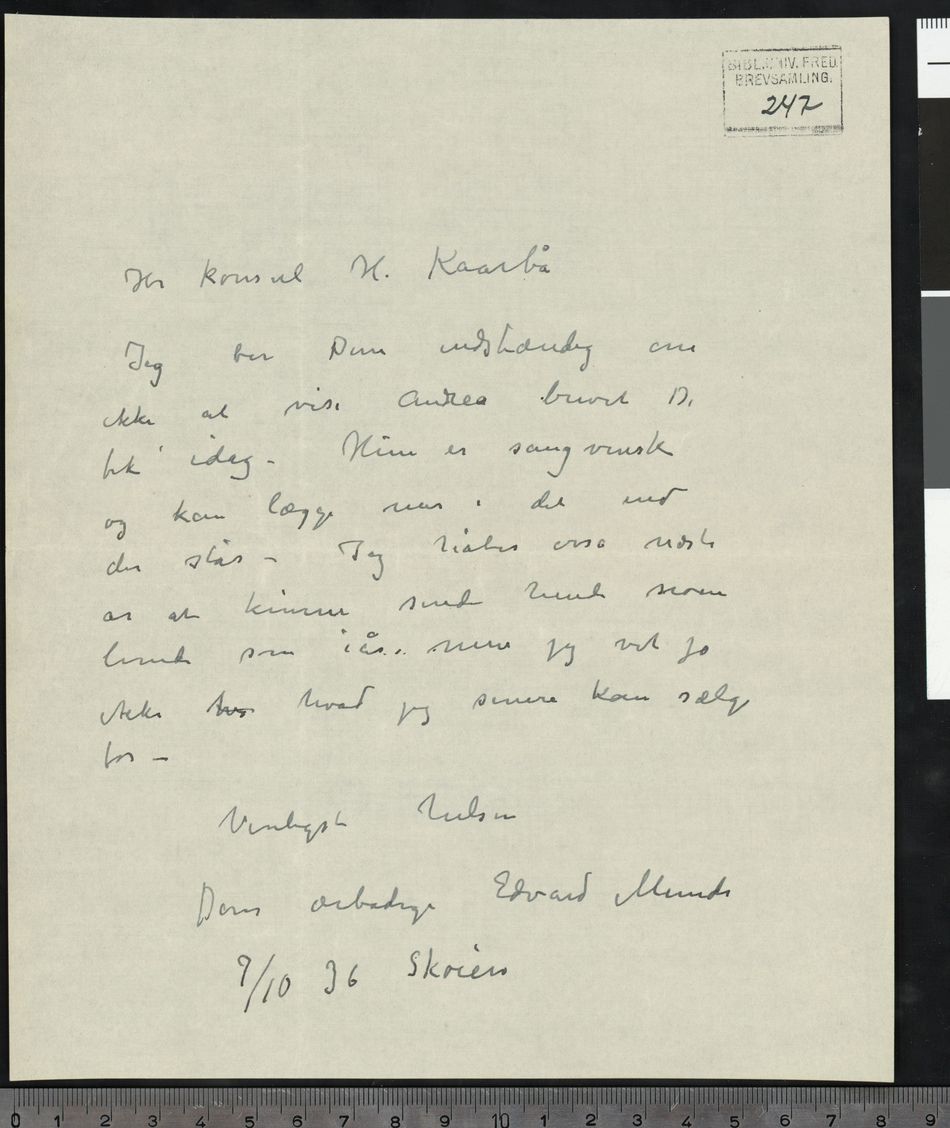 BIBL. UNIV. FRED.
BREVSAMLING.
247
Hr konsul H. Kaarbø
Jeg ber Dem indstændig om
ikke at vise Andrea brevet De
fik idag – Hun er sangvinsk
og kan lægge mer i det end
der står – Jeg håber osså næste
år at kunne sende hende noen
lunde som iår. men jeg vet jo
ikke hvad jeg senere kan sælge
for –
Venligst hilsen
Deres ærbødige Edvard Munch
9/10 36 Skøien